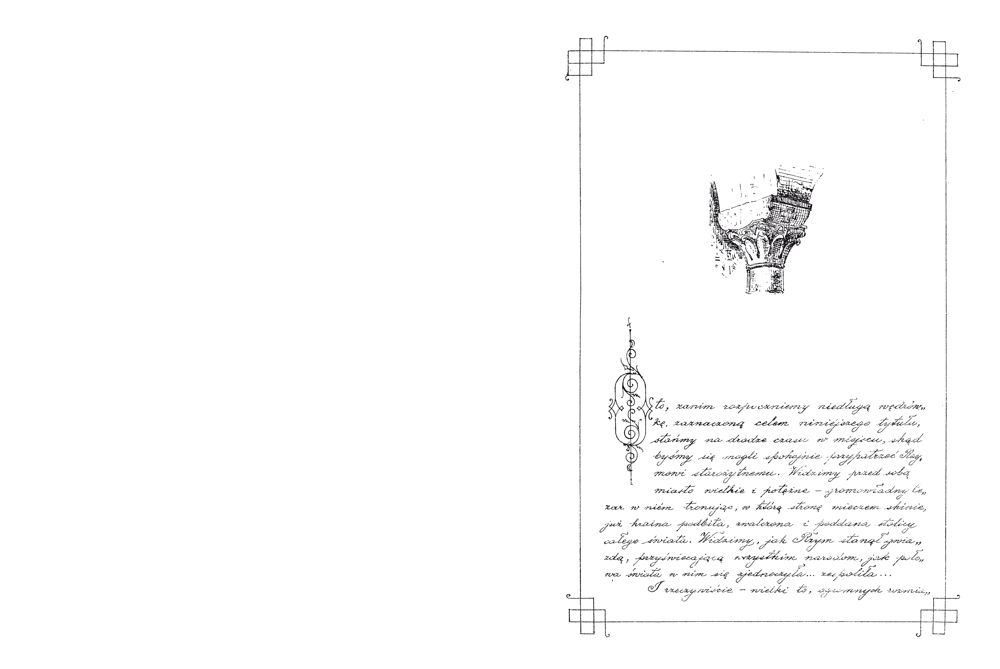 Oto, zanim rozpoczniemy niedługą wędrów„
kę, zaznaczoną celem niniejszego tytułu,
stańmy na drodze czasu w miejscu, skąd
byśmy się mogli spokojnie przypatrzeć Rzy„
mowi starożytnemu. Widzimy przed sobą
miasto wielkie i potężne – gromowładny Ce„
zar w niém tronując, w którą stronę mieczem skinie,
już kraina podbita, zwalczona i poddana stolicy
całego świata. Widzimy, jak Rzym stanął gwia„
zdą, przyświecającą wszystkim narodom, jak poło„
wa świata w nim się zjednoczyła... zespoliła...
I rzeczywiście – wielki to, ogromnych rozmia„